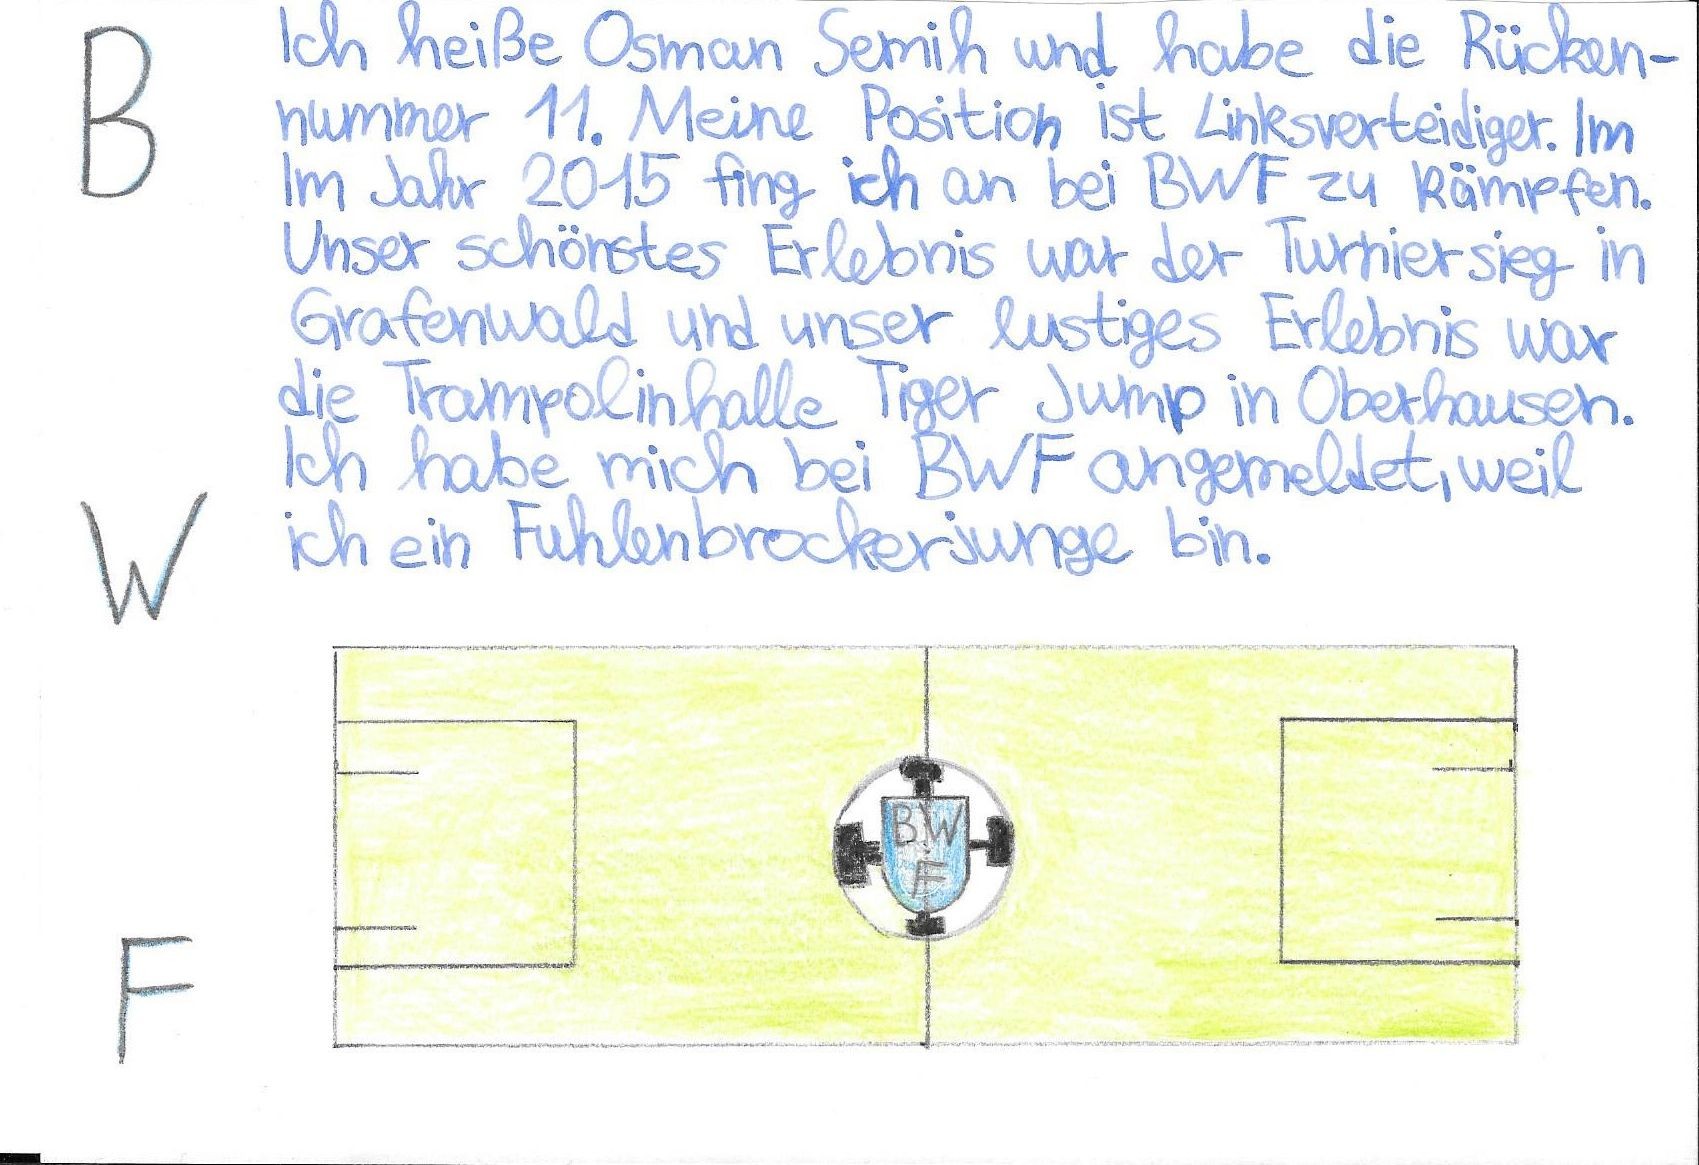 B
W
F
Ich heiße Osman Semih und habe die Rücken-
nummer 11. Meine Position ist Linksverteidiger. Im
Im Jahr 2015 fing ich an bei BWF zu kämpfen.
Unser schönstes Erlebnis war der Turniersieg in
Grafenwald und unser lustiges Erlebnis war
die Trampolinhalle Tiger Jump in Oberhausen.
Ich habe mich bei BWF angemeldet, weil
ich ein Fuhlenbrockerjunge bin.
BW
F